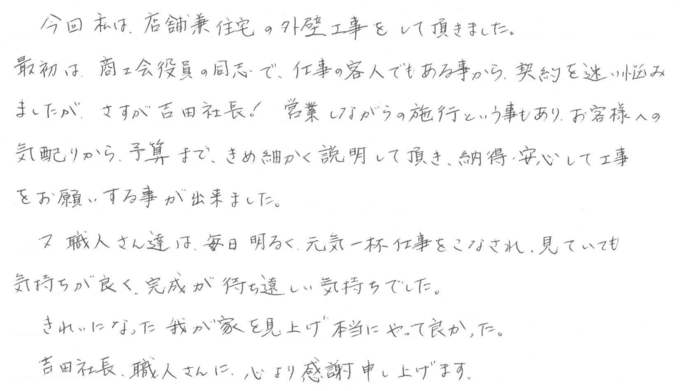 今回私は、店舗兼住宅の外壁工事をして頂きました。
最初は、商工会役員の同志で、仕事の客人でもある事から、契約を迷い悩み
ましたが、さすが吉田社長！ 営業しながらの施行という事もあり、お客様への
気配りから、予算まで、きめ細かく説明して頂き、納得・安心して工事
をお願いする事が出来ました。
又 職人さん達は、毎日明るく、元気一杯仕事をこなされ、見ていても
気持ちが良く、完成が待ち遠しい気持ちでした。
きれいになった我が家を見上げ本当にやって良かった。
吉田社長、職人さんに、心より感謝申し上げます。